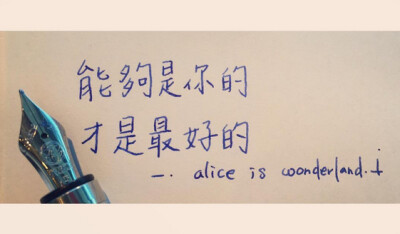 能夠是你的
才是最好的
一. alice is woonderland.